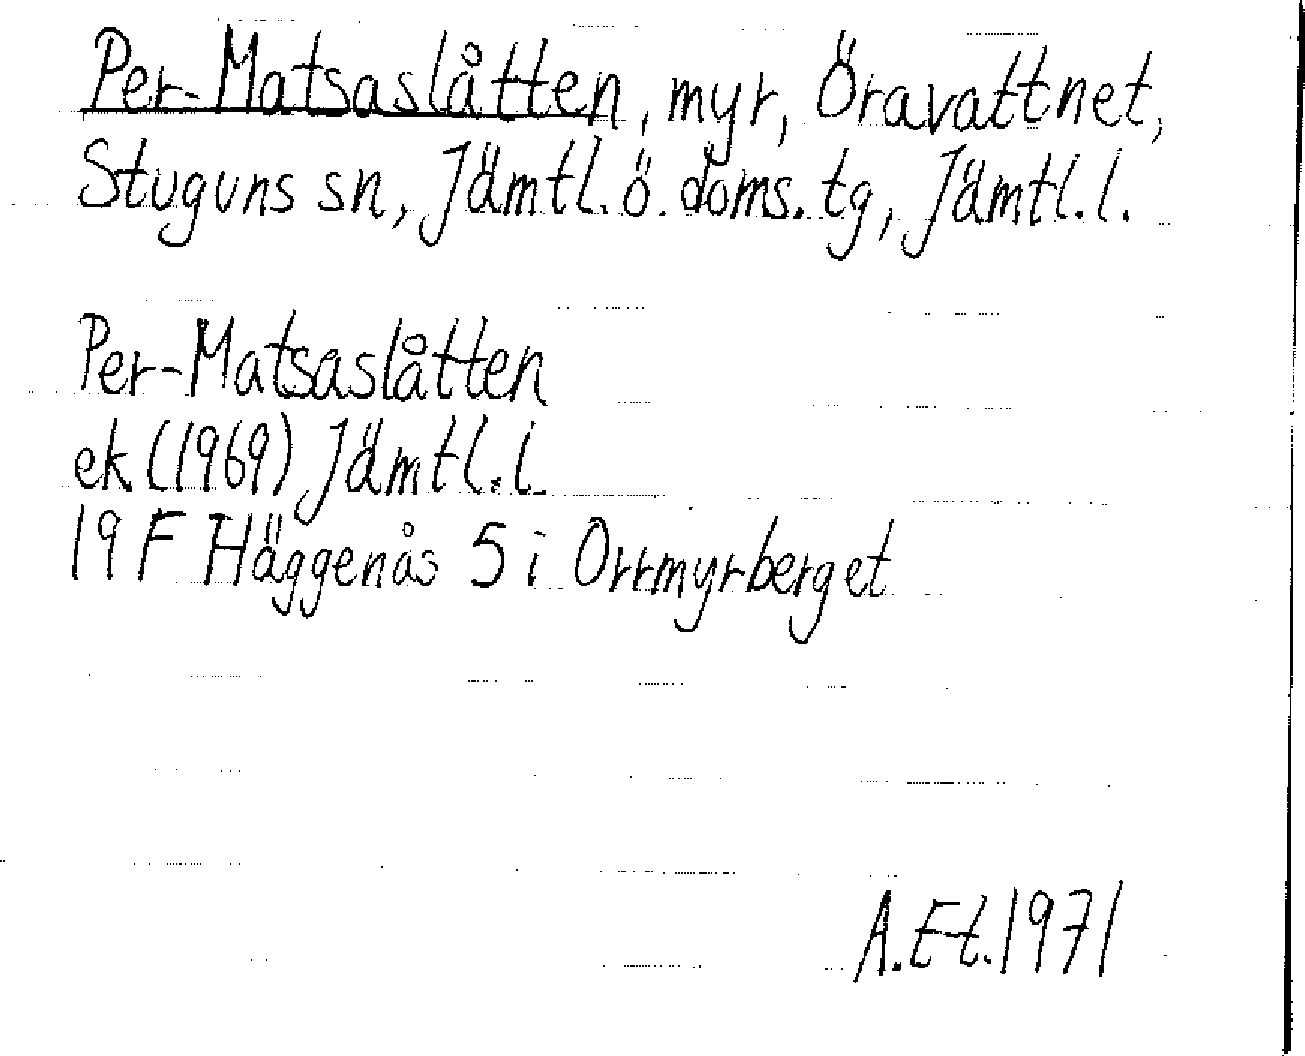 Per-Matsaslåtten, myr, Öravattnet,
Stuguns sn, Jämtl. ö. doms. tg, Jämtl. l.
Per-Matsaslåtten
ek (1969) Jämtl. l.
19 F Häggenås 5 i Orrmyrberget
A. Et. 1971